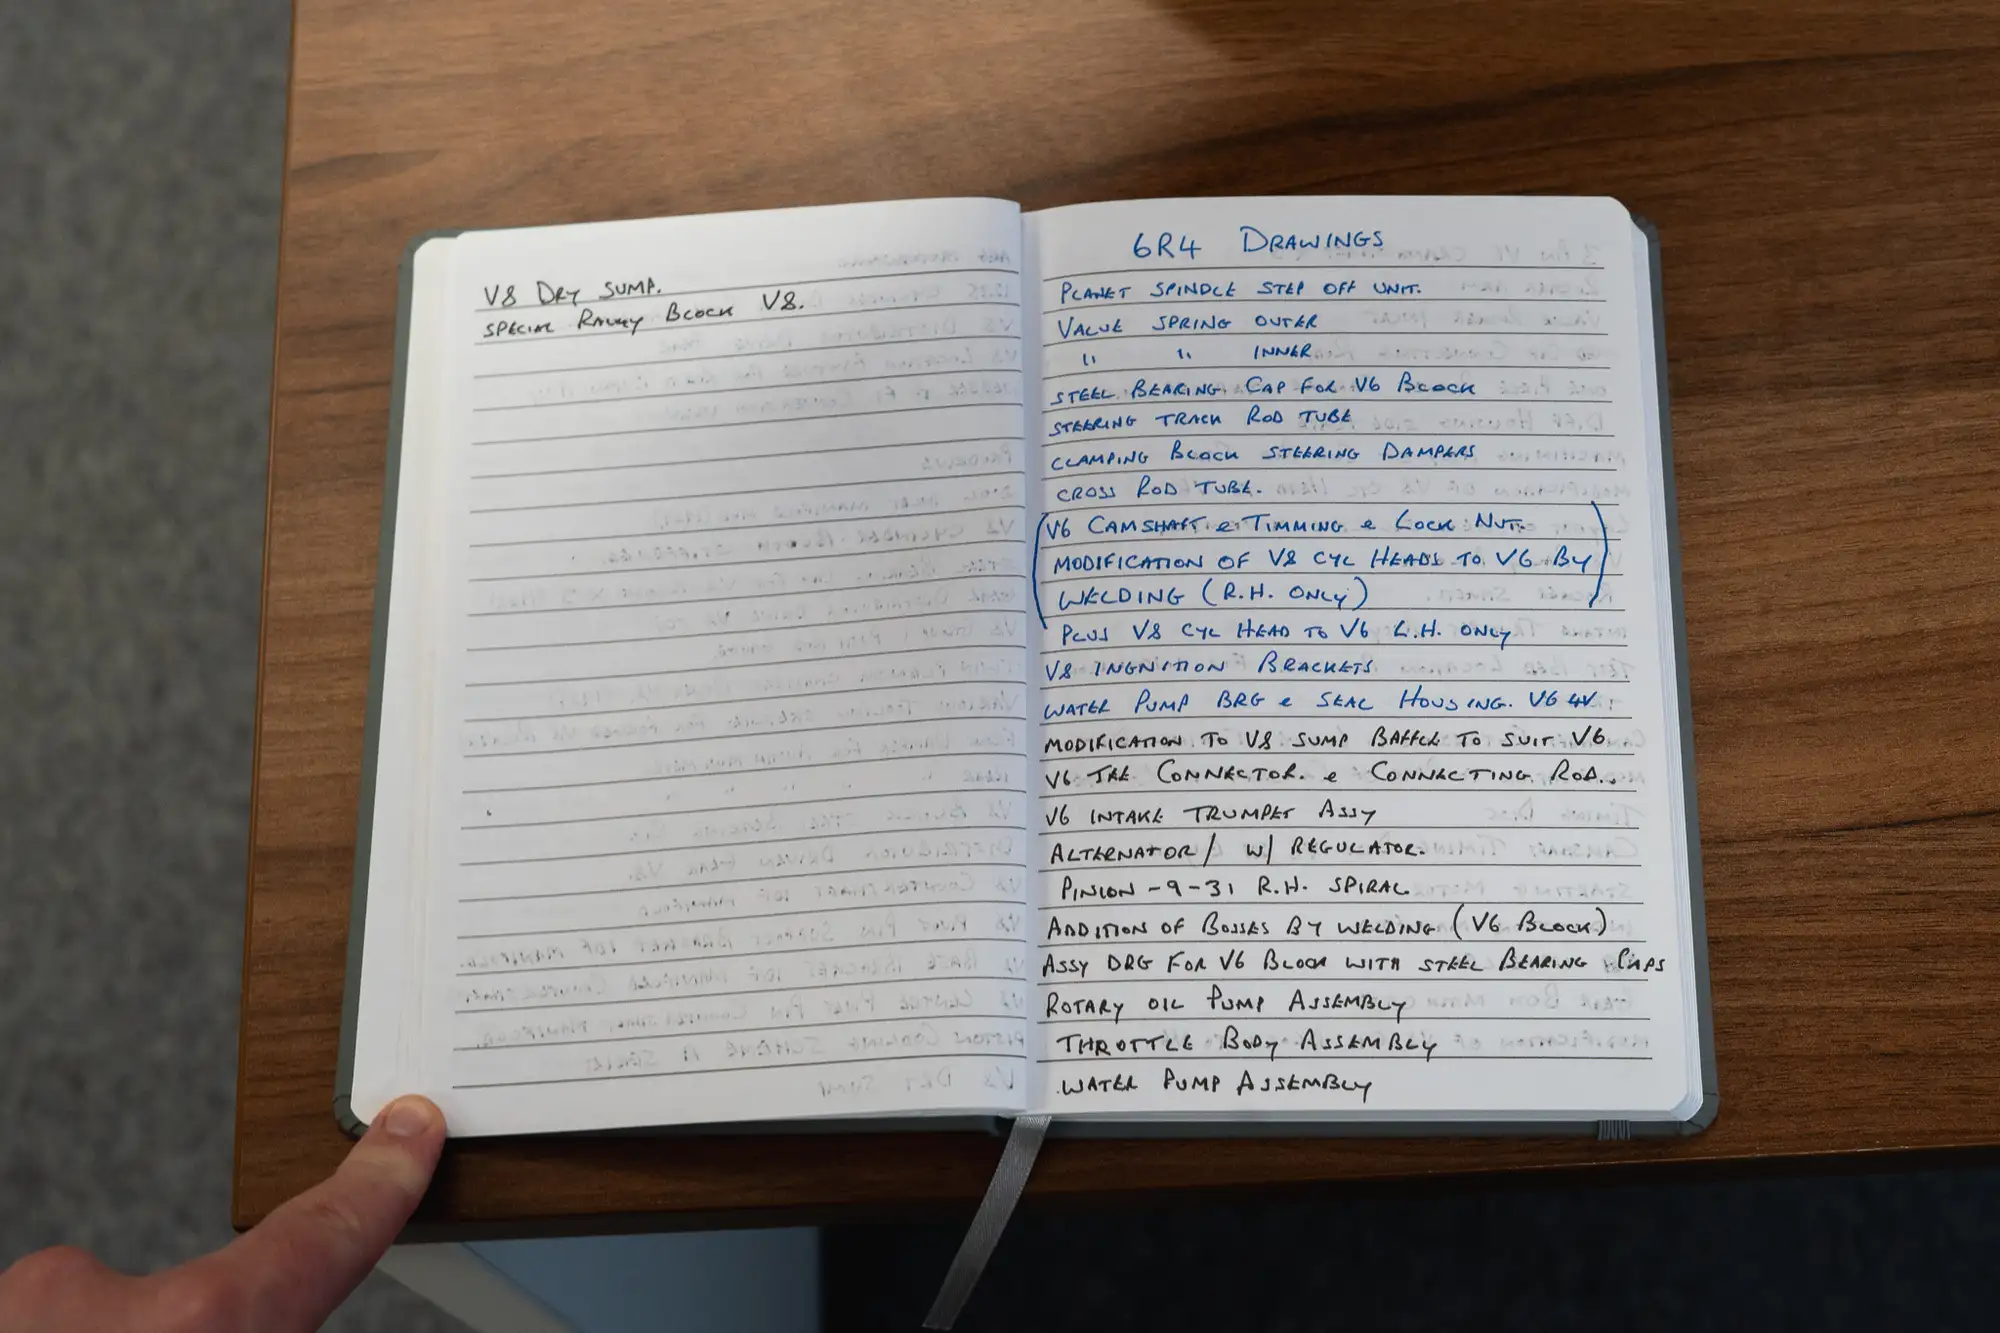 V8 DRY SUMP.
SPECIAL RALLY BLOCK V8.
6R4 DRAWINGS
PLANET SPINDLE STEP OFF UNIT.
VALUE SPRING OUTER
" " INNER
STEEL BEARING CAP FOR V6 BLOCK
STEERING TRACK ROD TUBE
CLAMPING BLOCK STEERING DAMPERS
CROSS ROD TUBE.
(V6 CAMSHAFT & TIMMING & LOCK NUT.
MODIFICATION OF V8 CYL HEADS TO V6 BY
WELDING (R.H. ONLY))
PLUS V8 CYL HEAD TO V6 L.H. ONLY
V8 INGNITION BRACKETS
WATER PUMP BRG & SEAL HOUSING. V6 4V.
MODIFICATION TO V8 SUMP BAFFLE TO SUIT V6
V6 CONNECTOR. & CONNECTING ROD.
V6 INTAKE TRUMPET ASSY
ALTERNATOR/ W/ REGULATOR.
PINION - 9 - 31 R.H. SPIRAL
ADDITION OF BOSSES BY WELDING (V6 BLOCK)
ASSY DRG FOR V6 BLOCK WITH STEEL BEARING CAPS
ROTARY OIL PUMP ASSEMBLY
THROTTLE BODY ASSEMBLY
WATER PUMP ASSEMBLY